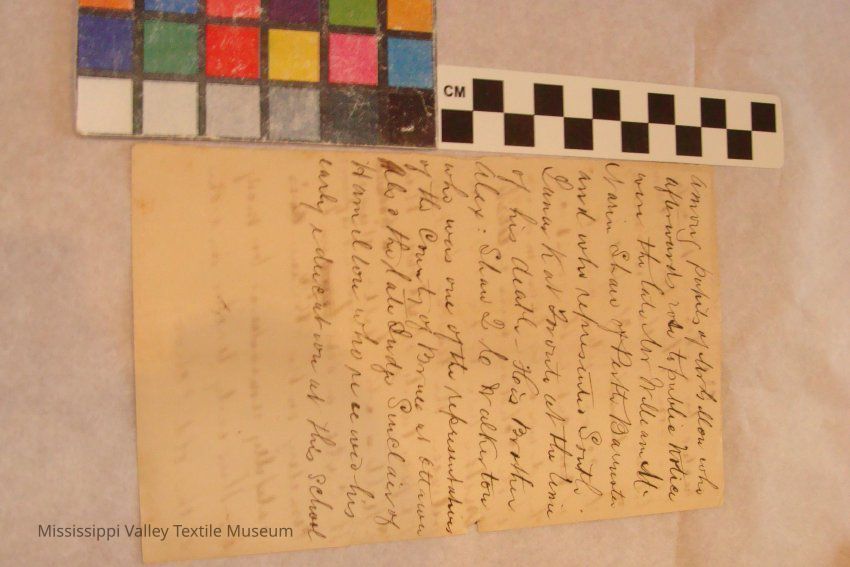 CM
among pupils of Mr Bellow who
afterwards rose to public Notice
were the late Mr William M.
Shaw of Perth Barrister
and who represented South
Lanark at Toronto at the time
of his death – His Brother
Alex: Shaw Walkerton
who was one of the representatives
of the County of Bruce at Ottawa
Also the late Judge Sinclair of
Hamilton who received his
early education at this School
Mississippi Valley Textile Museum